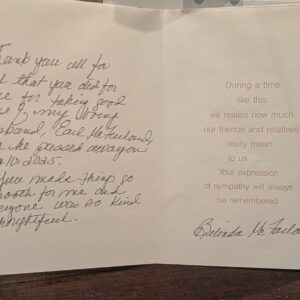 Thank you all for
that you did for
for taking good
my loving
husband, Earl McFarland,
he passed away on
10.2025.
You made things so
smooth for me and
everyone was so kind
thoughtful.
During a time
like this
we realize how much
our friends and relatives
really mean
to us . . .
Your expression
of sympathy will always
be remembered
Belinda McFarland